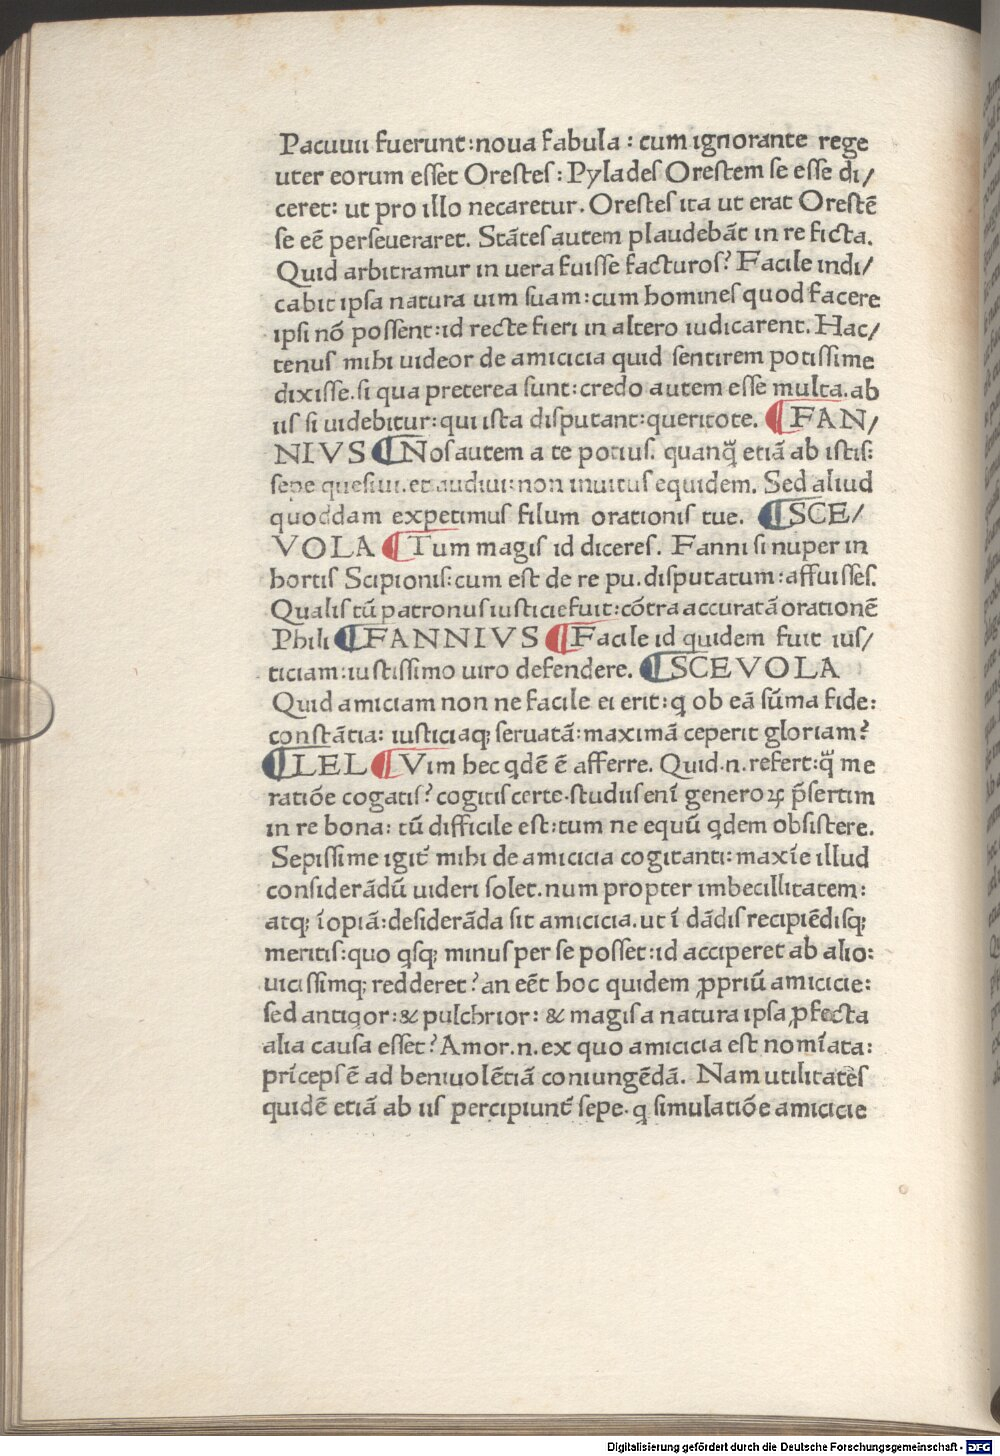 Pacuuii fuerunt:noua fabula : cum ignorante rege
uter eorum esset Orestes : Pylades Orestem se esse di/
ceret: ut pro illo necaretur. Orestes ita ut erat Orestē
se eē perseueraret. Stātes autem plaudebāt in re ficta.
Quid arbitramur in uera fuisse facturos? Facile indi/
cabit ipsa natura uim suam:cum homines quod facere
ipsi nō possent:id recte fieri in altero iudicarent. Hac/
tenus mihi uideor de amicicia quid sentirem potissime
dixisse.si qua preterea sunt:credo autem esse multa.ab
iis si uidebitur:qui ista disputant:queritote. ¶FAN/
NIVS ¶Nos autem a te potius. quanq̈ etiā ab istis:
sepe quesiui.et audiui:non inuitus equidem. Sed aliud
quoddam expetimus filum orationis tue. ¶SCE/
VOLA ¶Tum magis id diceres. Fanni si nuper in
hortis Scipionis:cum est de re pu.disputatum:affuisses.
Qualis tū patronus iusticie fuit:cōtra accuratā orationē
Phili ¶FANNIVS ¶Facile id quidem fuit ius/
ticiam:iustissimo uiro defendere. ¶SCEVOLA
Quid amiciam non ne facile ei erit:q ob eā sūma fide:
constātia: iusticiaq; seruatā:maximā ceperit gloriam?
¶LEL ¶Vim hec qdē ē afferre. Quid.n.refert:q̈ me
ratiōe cogatis? cogitis certe.studiis enī generoꝝ p̄sertim
in re bona: tū difficile est:tum ne equū qdem obsistere.
Sepissime igit̄ mihi de amicicia cogitanti:maxīe illud
considerādū uideri solet.num propter imbecillitatem:
atq; īopiā:desiderāda sit amicicia.ut ī dādis recipiēdisq;
meritis:quo qsq; minus per se posset:id acciperet ab alio:
uicissimq; redderet? an eēt hoc quidem ꝓpriū amicicie:
sed antiqor:& pulchrior: & magis a natura ipsa ꝓfecta
alia causa esset? Amor.n.ex quo amicicia est nomīata:
prīceps ē ad beniuolētiā coniungēdā. Nam utilitates
quidē etiā ab iis percipiunt̄ sepe.q simulatiōe amicicie
Digitalisierung gefördert durch die Deutsche Forschungsgemeinschaft - DFG